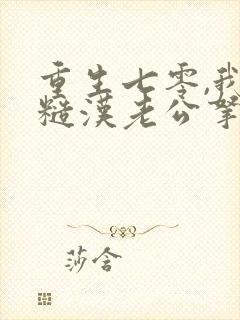 重生七零,我
糙漢老公寧
莎含